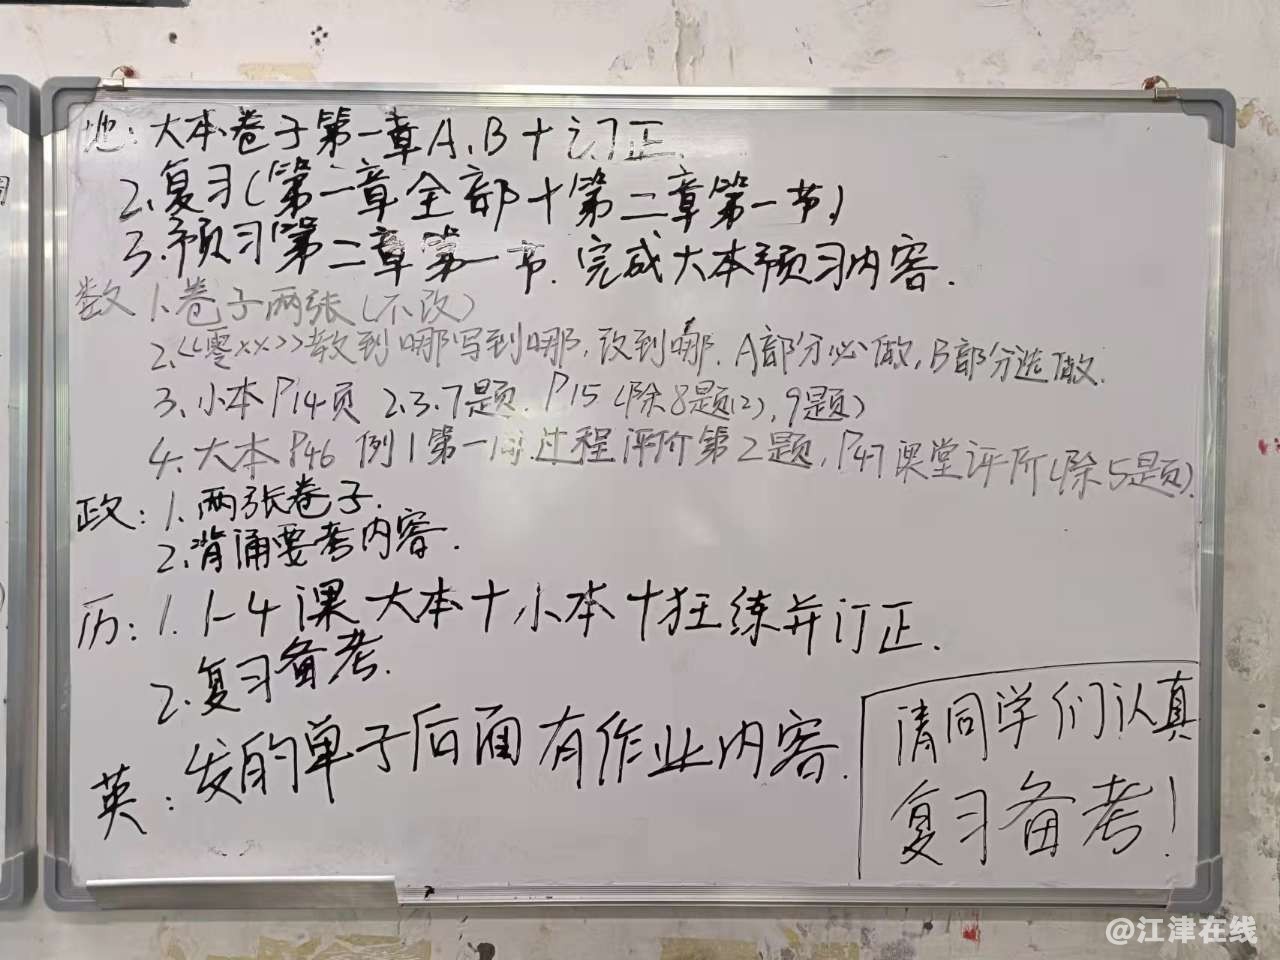 地: 大本卷子第一章A、B+订正.
2.复习(第一章全部+第二章第一节)
3.预习第二章第一节.完成大本预习内容.
数 1.卷子两张(不改)
2.<<零xx>>教到哪写到哪,改到哪.A部分必做,B部分选做.
3.小本P14页 2.3.7题. P15(除8题(2),9题)
4.大本P46 例1第一问.过程评价第2题,P47课堂评价(除5题).
政: 1.两张卷子.
2.背诵要考内容.
历: 1. 1-4课 大本+小本+狂练并订正.
2.复习备考.
英: 发的单子后面有作业内容.
请同学们认真
复习备考!
@江津在线